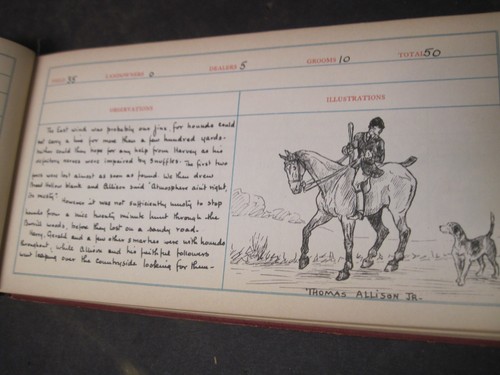 35 LANDOWNERS 0 DEALERS 5 GROOMS 10 TOTAL 50
OBSERVATIONS
The East wind was probably our jinx, for hounds could
not carry a line for more than a few hundred yards.
Neither could they hope for any help from Harvey as his
olfactory nerves were impaired by snuffles. The first two
were lost almost as soon as found. We then drew
Broad Hollow blank and Allison said "Atmosphere ain't right,
its musty". However it was not sufficiently musty to stop
hounds from a nice twenty minute hunt through the
woods, before they lost on a sandy road.
Harry, Gerald and a few other smarties were with hounds
throughout, while Allison and his faithful followers
went larking over the countryside looking for them -
ILLUSTRATIONS
THOMAS ALLISON JR.